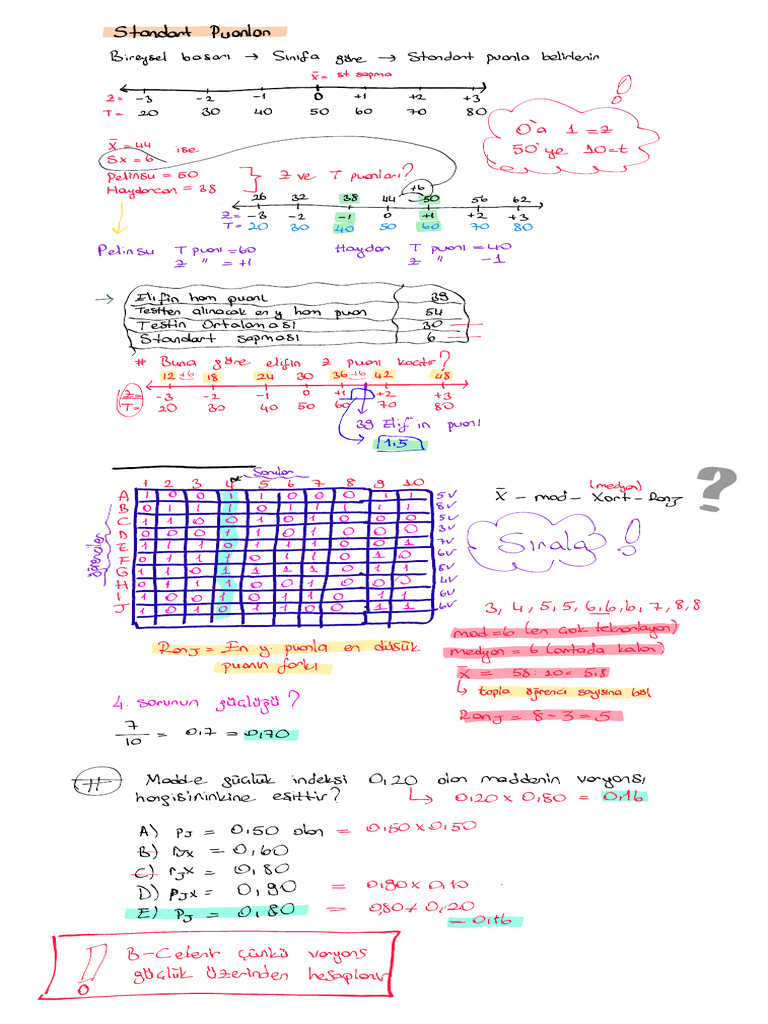 Standart Puanlar
Bireysel başarı → Sınıfa göre → Standart puanla belirlenir
X̄ = st sapma
Z = -3 -2 -1 0 +1 +2 +3
T = 20 30 40 50 60 70 80
0'a 1 = z
50'ye 10 = t
!
X̄ = 44 ise
Sx = 6
Pelinsu = 50
Haydarcan = 38
Z ve T puanları?
+6
26 32 38 44 50 56 62
Z = -3 -2 -1 0 +1 +2 +3
T = 20 30 40 50 60 70 80
Pelinsu T puanı = 60
Z " = +1
Haydar T puanı = 40
Z " -1
→ Elifin ham puanı 39
Testten alınacak en y ham puan 54
Testin Ortalaması 30
Standart sapması 6
# Buna göre elifin z puanı kaçtır?
12 +6 18 24 30 36 +6 42 48
Z = -3 -2 -1 0 +1 +2 +3
T = 20 30 40 50 60 70 80
39 Elif'in puanı
1,5
Sorular
1 2 3 4 5 6 7 8 9 10
öğrenciler
A 1 0 0 1 1 0 0 0 1 1 5V
B 8V
C 5V
D 3V
E 7V
F 6V
G 8V
H 4V
I 6V
J 6V
(medyan)
X̄ - mod - Xort - Ranj ?
Sırala !
3, 4, 5, 5, 6, 6, 6, 7, 8, 8
mod = 6 (en çok tekrarlayan)
medyan = 6 (ortada kalan)
X̄ = 58 : 10 = 5,8
topla öğrenci sayısına böl
Ranj = 8 - 3 = 5
Ranj = En y. puanla en düşük
puanın farkı
4. sorunun güçlüğü?
7
10 = 0,7 = 0,70
# Madde güçlük indeksi 0,20 olan maddenin varyansı
hangisininkine eşittir? 0,20 x 0,80 = 0,16
A) PJ = 0,50 olan = 0,50 x 0,50
B) rJX = 0,60
C) rJX = 0,80
D) PJX = 0,90 = 0,90 x 0,10
E) PJ = 0,80 = 0,80 x 0,20
= 0,16
! B-C elenir çünkü varyans
güçlük üzerinden hesaplanır